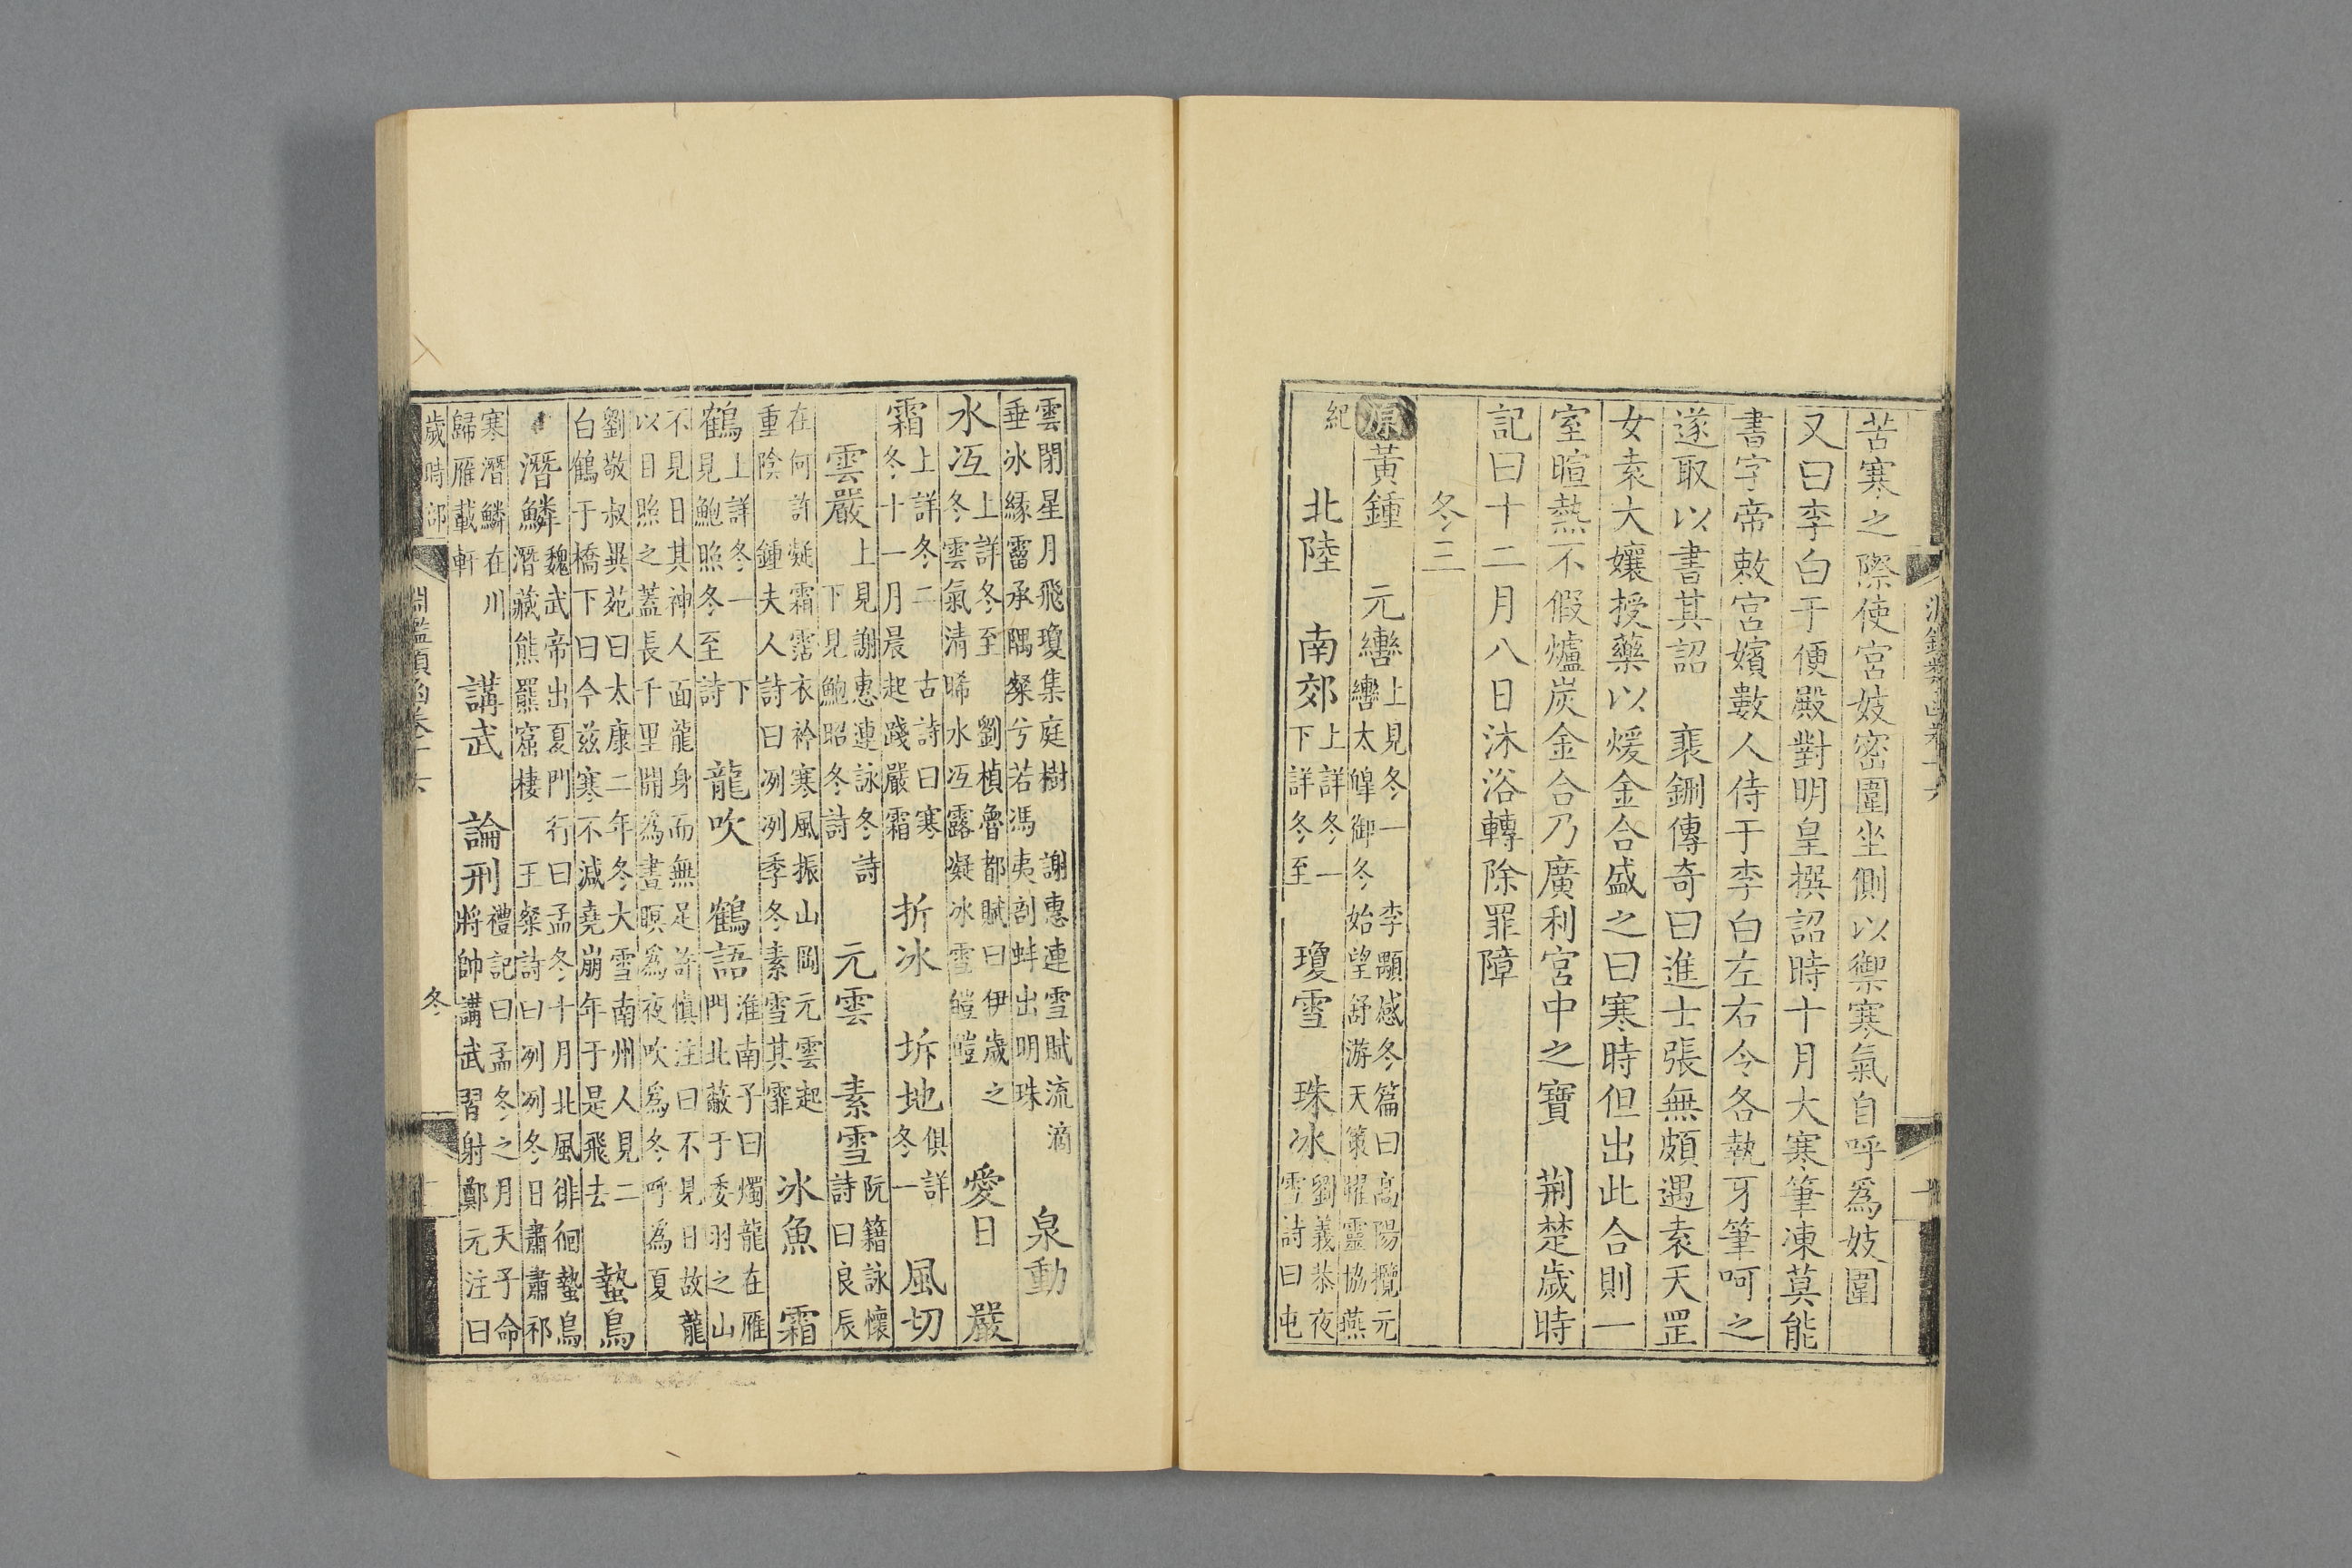 苦寒之際使宮妓密圍坐側以禦寒氣自呼爲妓圍
又曰李白于便殿對明皇撰詔時十月大寒筆凍莫能
書字帝敕宮嬪數人侍于李白左右令各執牙筆呵之
遂取以書其詔　裴鉶傳奇曰進士張無頗遇袁天罡
女袁大孃授藥以煖金合盛之曰寒時但出此合則一
室暄熱不假爐炭金合乃廣利宮中之寶　荆楚歲時
記曰十二月八日沐浴轉除罪障
冬三
原黃鍾　元轡上見冬一　李顒感冬篇曰高陽攬元
轡太皥御冬始望舒游天策曜靈協燕
紀　北陸　南郊上詳冬一
下詳冬至　瓊雪　珠冰劉義恭夜
雪詩曰屯
雲閉星月飛瓊集庭樹　謝惠連雪賦流滴
垂冰緣霤承隅粲兮若馮夷剖蚌出明珠　泉動
水冱上詳冬至　劉楨魯都賦曰伊歲之
冬雲氣清晞水冱露凝冰雪皚皚　愛日　嚴
霜上詳冬二　古詩曰寒
冬十一月晨起踐嚴霜　折冰　坼地俱詳
冬一　風切
雲嚴上見謝惠連詠冬詩
下見鮑昭冬詩　元雲　素雪阮籍詠懷
詩曰良辰
在何許凝霜霑衣衿寒風振山岡元雲起
重陰　鍾夫人詩曰冽冽季冬素雪其霏　冰魚　霜
鶴上詳冬一　下
見鮑照冬至詩　龍吹　鶴語淮南子曰燭龍在雁
門北蔽于委羽之山
不見日其神人面龍身而無足許慎注曰不見日故龍
以目照之蓋長千里開爲晝暝爲夜吹爲冬呼爲夏
劉敬叔異苑曰太康二年冬大雪南州人見二
白鶴于橋下曰今兹寒不減堯崩年于是飛去　蟄鳥
潛鱗魏武帝出夏門行曰孟冬十月北風徘徊蟄鳥
潛藏熊羆窟棲　王粲詩曰冽冽冬日肅肅祁
寒潛鱗在川
歸雁載軒　講武　論刑禮記曰孟冬之月天子命
將帥講武習射鄭元注曰
歲時部　淵鑑類函卷十六　冬